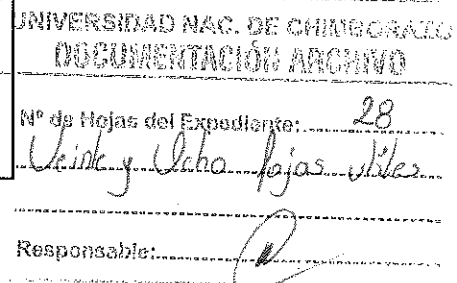 UNIVERSIDAD NAC. DE CHIMBORAZO
DOCUMENTACIÓN ARCHIVO
Nº de Hojas del Expediente: 28
Veinte y Ocho fojas útiles
Responsable: